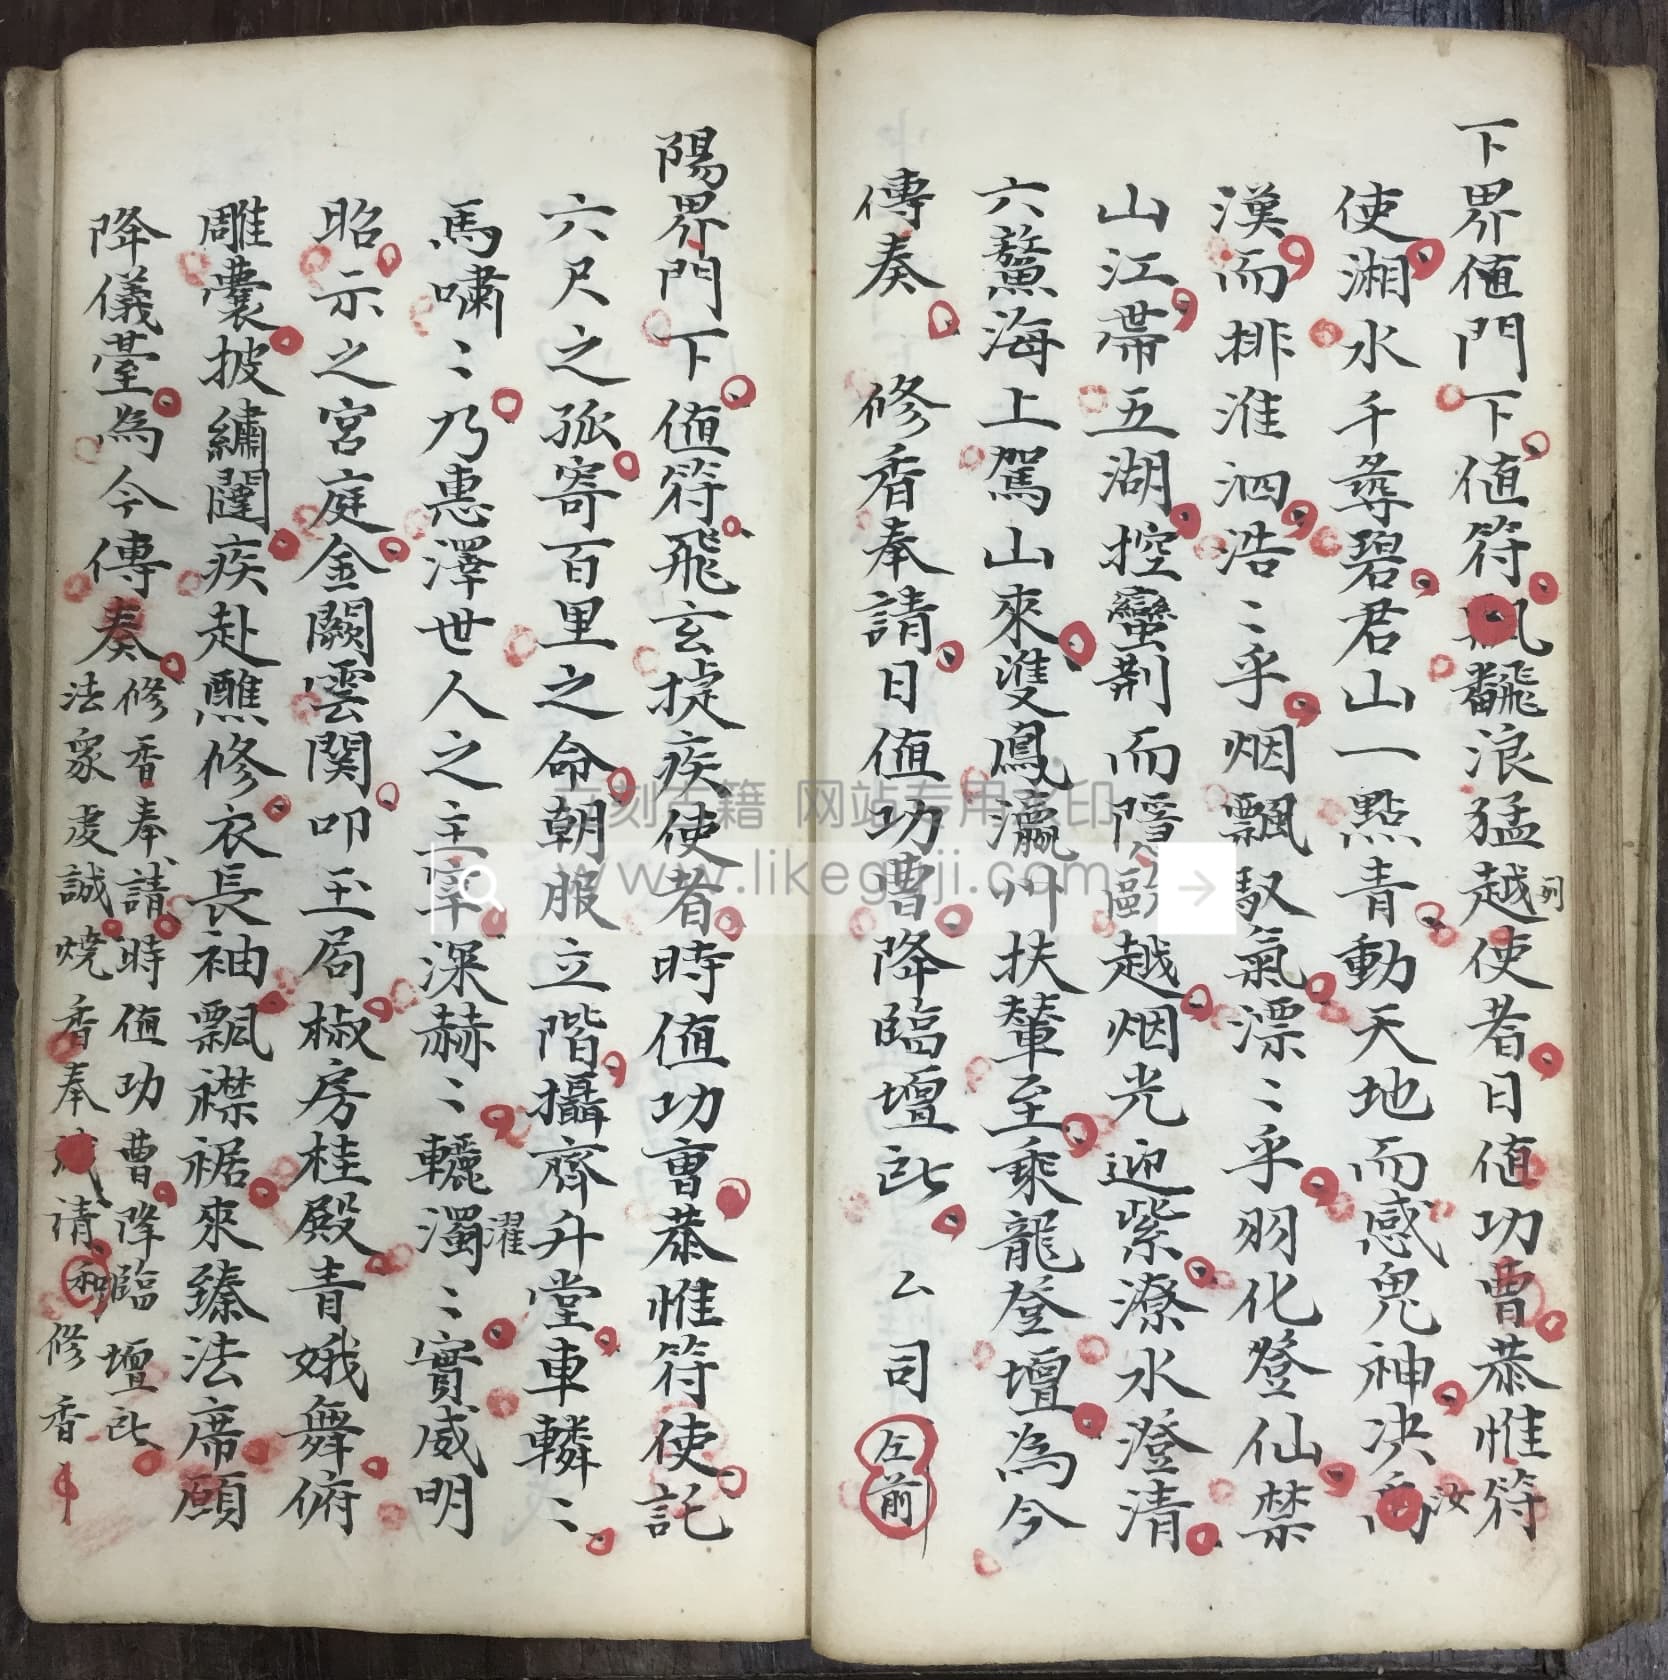 下界值門下值符飜浪猛越使者日值功曹恭惟符
列
使湘水千尋碧君山一點青動天地而感鬼神決
汝
漢而排淮泗浩〻乎烟飄馭氣漂〻乎羽化登仙禁
山江帶五湖控蠻荆而隱甌越烟光迎紫潦水澄清
六鰲海上駕山來雙鳳瀛州扶輦至乘龍登壇為今
傳奏 修香奉請日值功曹降臨壇所 厶司
左前
陽界門下值符飛玄捷疾使者時值功曹恭惟符使託
六尺之孤寄百里之命朝服立階攝齊升堂車轔〻
馬嘯〻乃惠澤世人之主宰深赫〻轣濁〻實威明
濯
昭示之宮庭金闕雲関叩玉局椒房桂殿青娥舞俯
雕囊披繡闥疾赴醮修衣長袖飄襟裾來臻法席願
降儀臺為今傳奏
修香奉請時值功曹降臨壇所
法眾虔誠燒香奉請
和
修香
六刻古籍 网站专用水印
www.likeguji.com